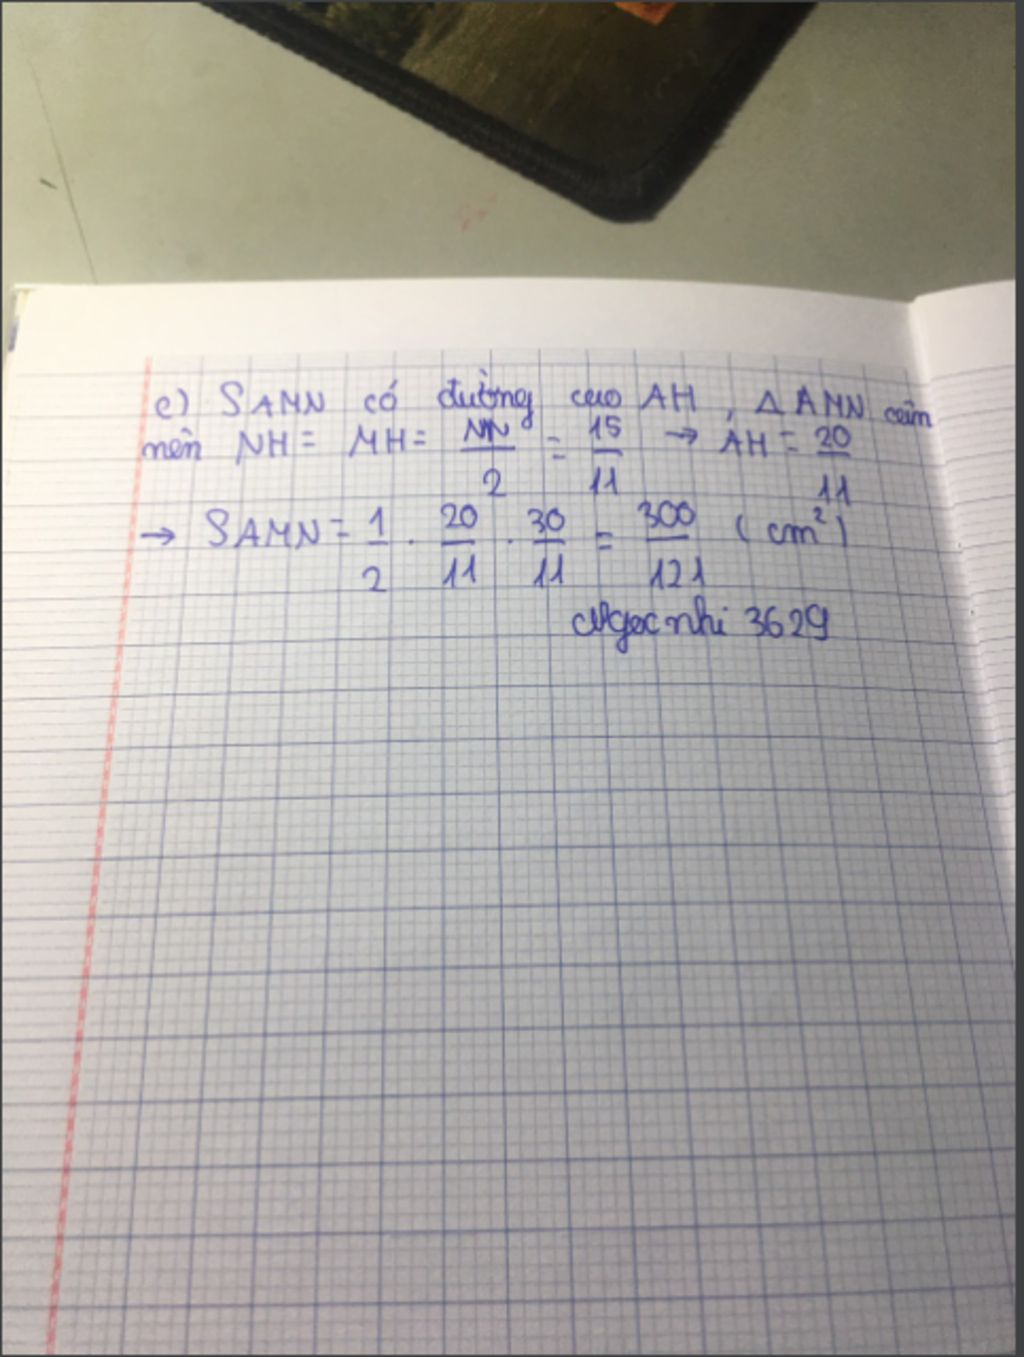 c) SAMN có đường cao AH, Δ AMN cân
nên NH = MH = MN/2 = 15/11 → AH = 20/11
→ SAMN = 1/2 . 20/11 . 30/11 = 300/121 (cm²)
Ngocnhi 3629